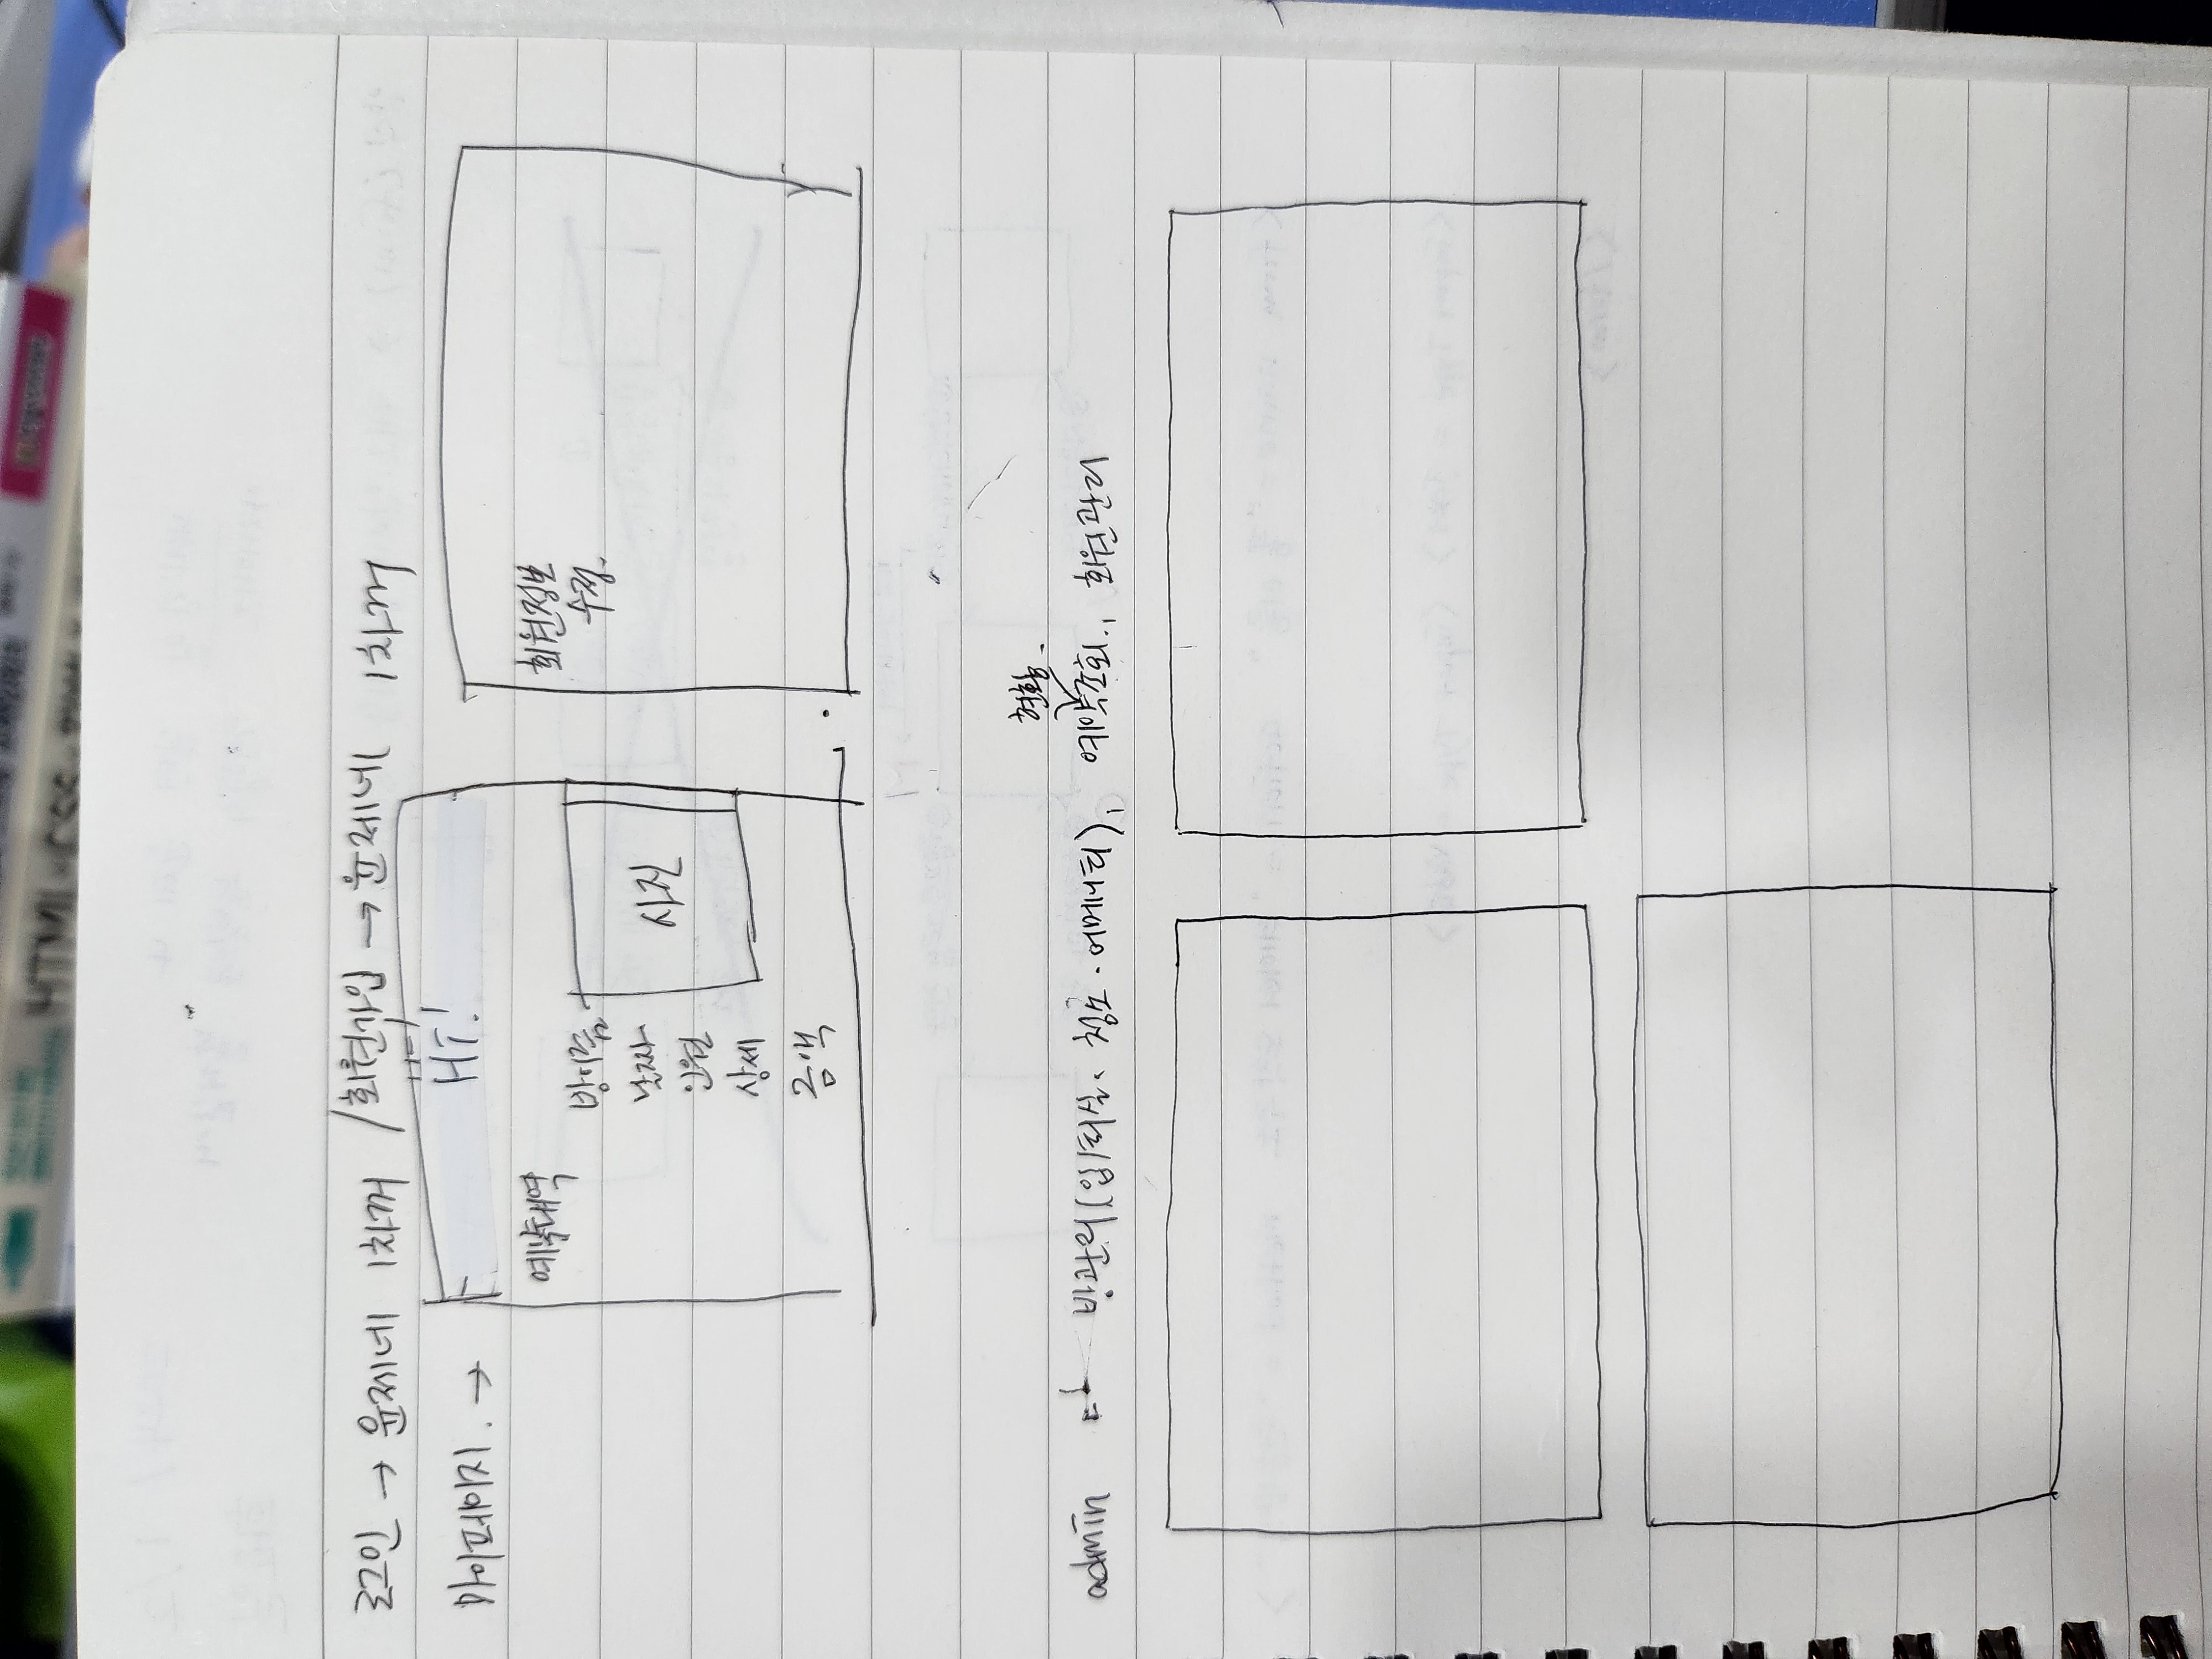 HTML + CSS +
로그인 → 윤제네 1차꺼 / 회원가입 → 윤제네 1차꺼
마이페이지. →
Hi!
예약내역
방이름
날짜
인원
상세
금액
사진
회원정보
수정.
현황.
admin 방관리(입/퇴실. 청소. 어메니티), 예약조회., 회원관리